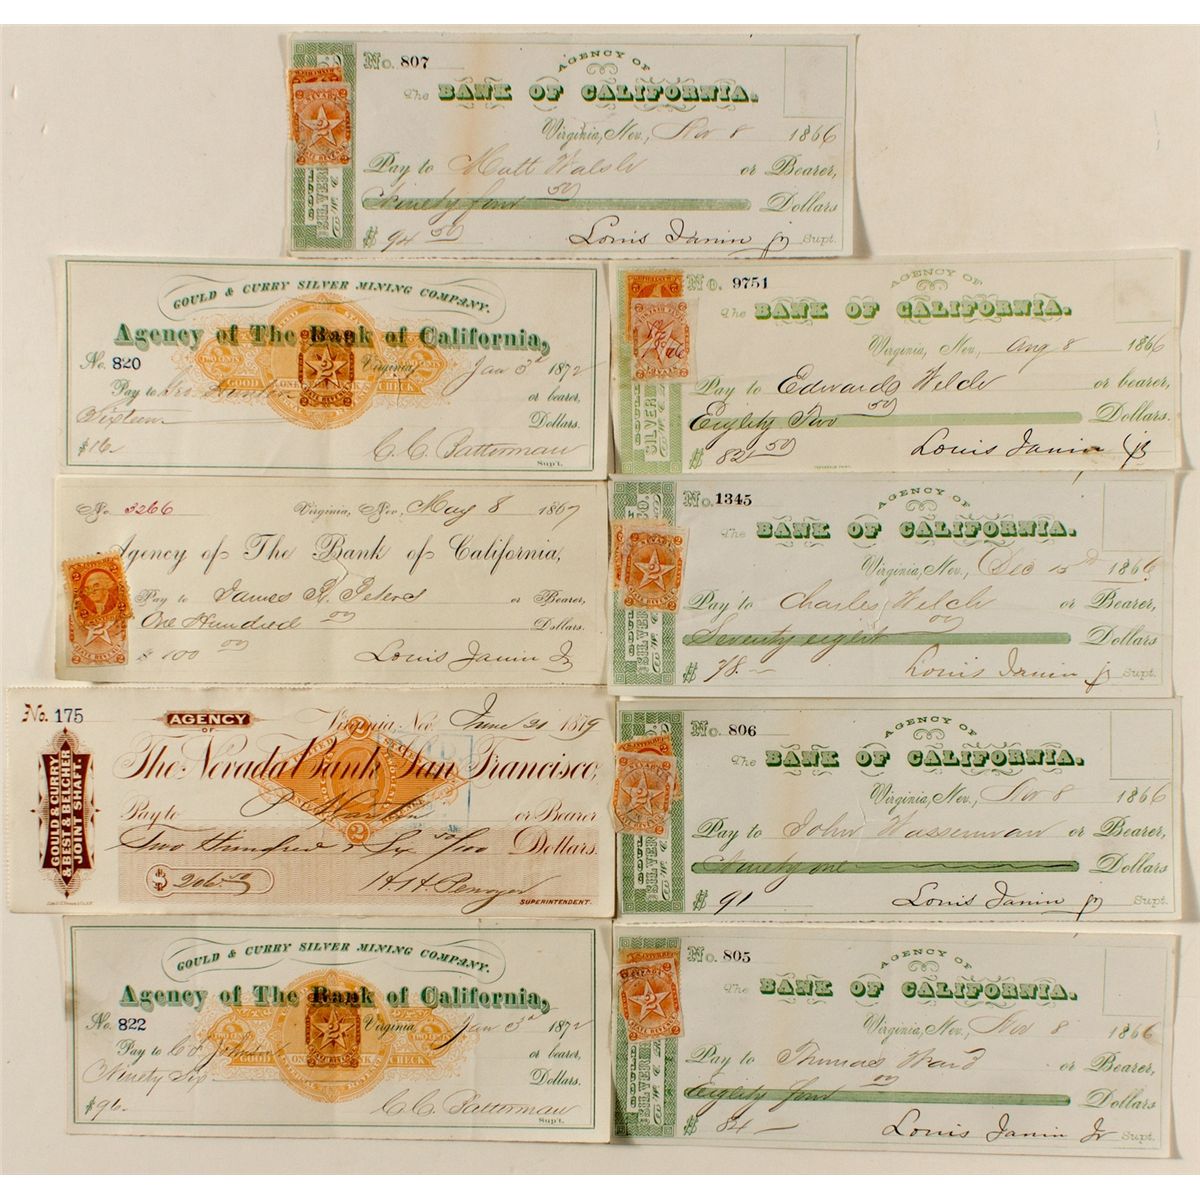 No. 807
AGENCY OF
The BANK OF CALIFORNIA.
Virginia, Nev, Nov 8 1866
Pay to Matt Walsh or Bearer,
Ninety four 50 Dollars
$ 94 50 Louis Janin Jr Supt.
GOULD & CURRY SILVER MINING COMPANY.
Agency of The Bank of California,
No. 820 Virginia, Jan 3d 1872
Pay to or bearer,
Sixteen Dollars.
$16 C. C. Batterman
Sup't.
GOOD ONE BANK CHECK
No. 9751
AGENCY OF
The BANK OF CALIFORNIA.
Virginia, Nev, Aug 8 1866
Pay to Edward Welch or bearer,
Eighty Two 50 Dollars.
$ 82 50 Louis Janin Jr
No. 3266 Virginia, Nev, May 8 1867
Agency of The Bank of California,
Pay to James R. Peters or Bearer,
One Hundred 00 Dollars.
$ 100 00 Louis Janin Jr
No. 1345
AGENCY OF
The BANK OF CALIFORNIA.
Virginia, Nev, Dec 1866
Pay to Charles Welch or Bearer,
Seventy eight 00 Dollars
$ 78.— Louis Janin Jr Supt.
No. 175
AGENCY
OF
Virginia, Nev. June 1879
The Nevada Bank San Francisco,
Pay to or Bearer
Two Hundred & Six /100 Dollars.
$ 206
SUPERINTENDENT.
GOULD & CURRY
& BEST & BELCHER
JOINT SHAFT.
No. 806
AGENCY OF
The BANK OF CALIFORNIA.
Virginia, Nev, Nov 8 1866
Pay to John Wasserman or Bearer
Ninety one Dollars
$ 91 Louis Janin Jr Supt.
GOULD & CURRY SILVER MINING COMPANY.
Agency of The Bank of California,
No. 822 Virginia Jan 3d 1872
Pay to or bearer,
Ninety Six Dollars.
$96.— C. C. Batterman
Sup't.
GOOD ONE BANK CHECK
No. 805
AGENCY OF
The BANK OF CALIFORNIA.
Virginia, Nev, Nov 8 1866
Pay to Thomas Ward or Bearer,
Eighty four 00 Dollars
$ 84 — Louis Janin Jr Supt.